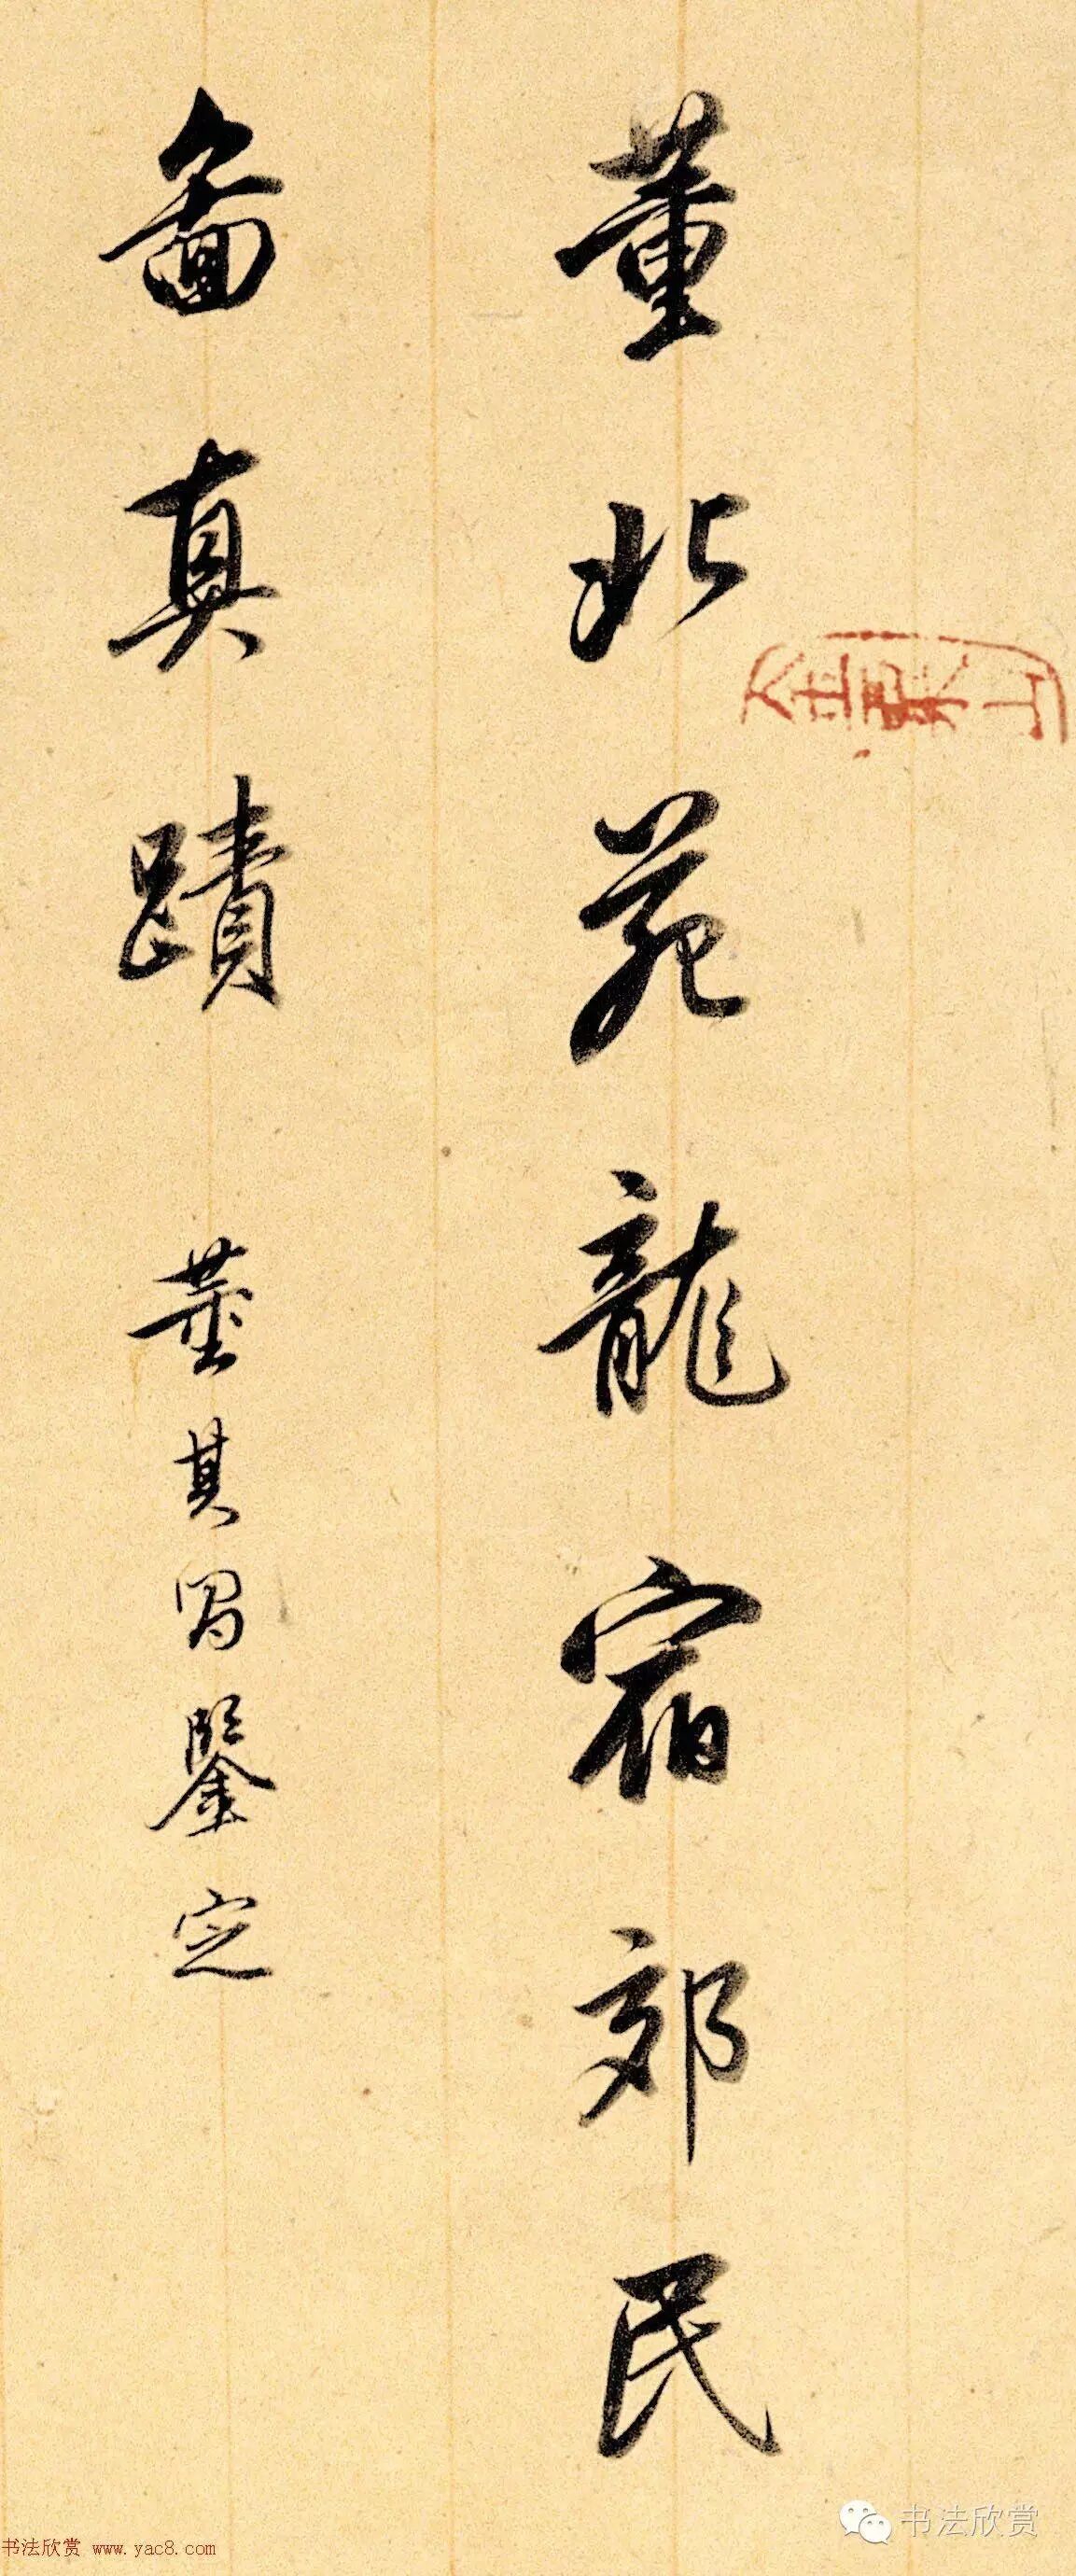 董北苑龍宿郊民
畵真蹟 董其昌鑒定
书法欣赏
书法欣赏 www.yac8.com